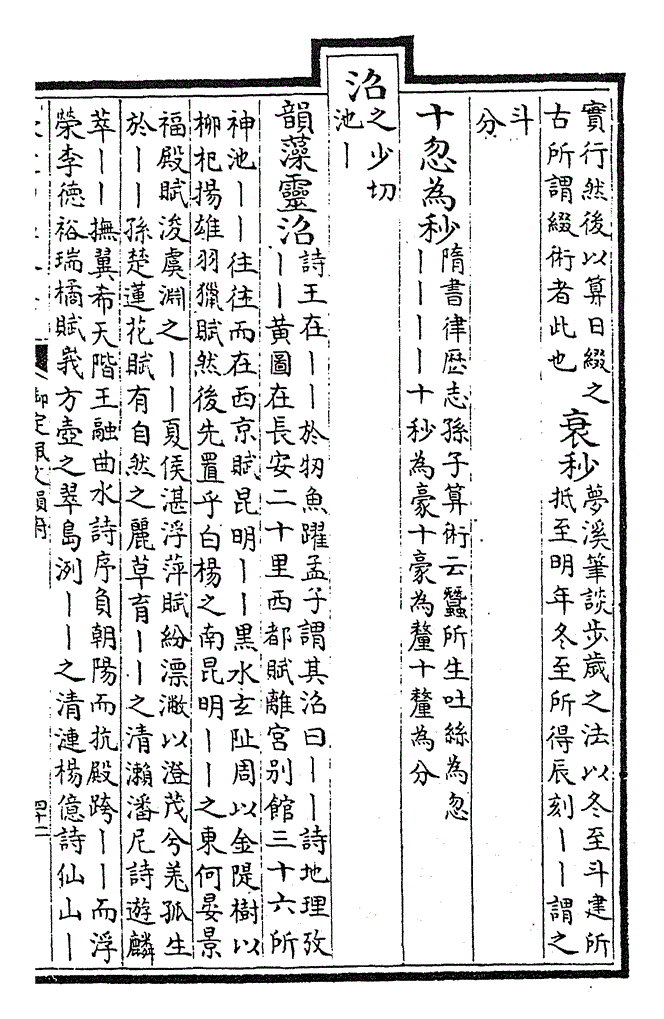 實行然後以算日綴之
古所謂綴術者此也
衰秒
夢溪筆談步歲之法以冬至斗建所
抵至明年冬至所得辰刻丨丨謂之
斗
分
十忽為秒
隋書律歴志孫子算術云蠶所生吐絲為忽
丨丨丨丨十秒為豪十豪為釐十釐為分
沼
之少切
池丨
韻藻靈沼
詩王在丨丨於牣魚躍孟子謂其沼曰丨丨詩地理攷
丨丨黄圖在長安二十里西都賦離宮别館三十六所
神池丨丨往往而在西京賦昆明丨丨黒水玄阯周以金隄樹以
柳杞揚雄羽獵賦然後先置乎白楊之南昆明丨丨之東何晏景
福殿賦浚虞淵之丨丨夏侯湛浮萍賦紛漂潎以澄茂兮羗孤生
於丨丨孫楚蓮花賦有自然之麗草育丨丨之清瀬潘尼詩遊麟
萃丨丨撫翼希天階王融曲水詩序負朝陽而抗殿跨丨丨而浮
榮李德裕瑞橘賦峩方壺之翠島洌丨丨之清漣楊億詩仙山丨